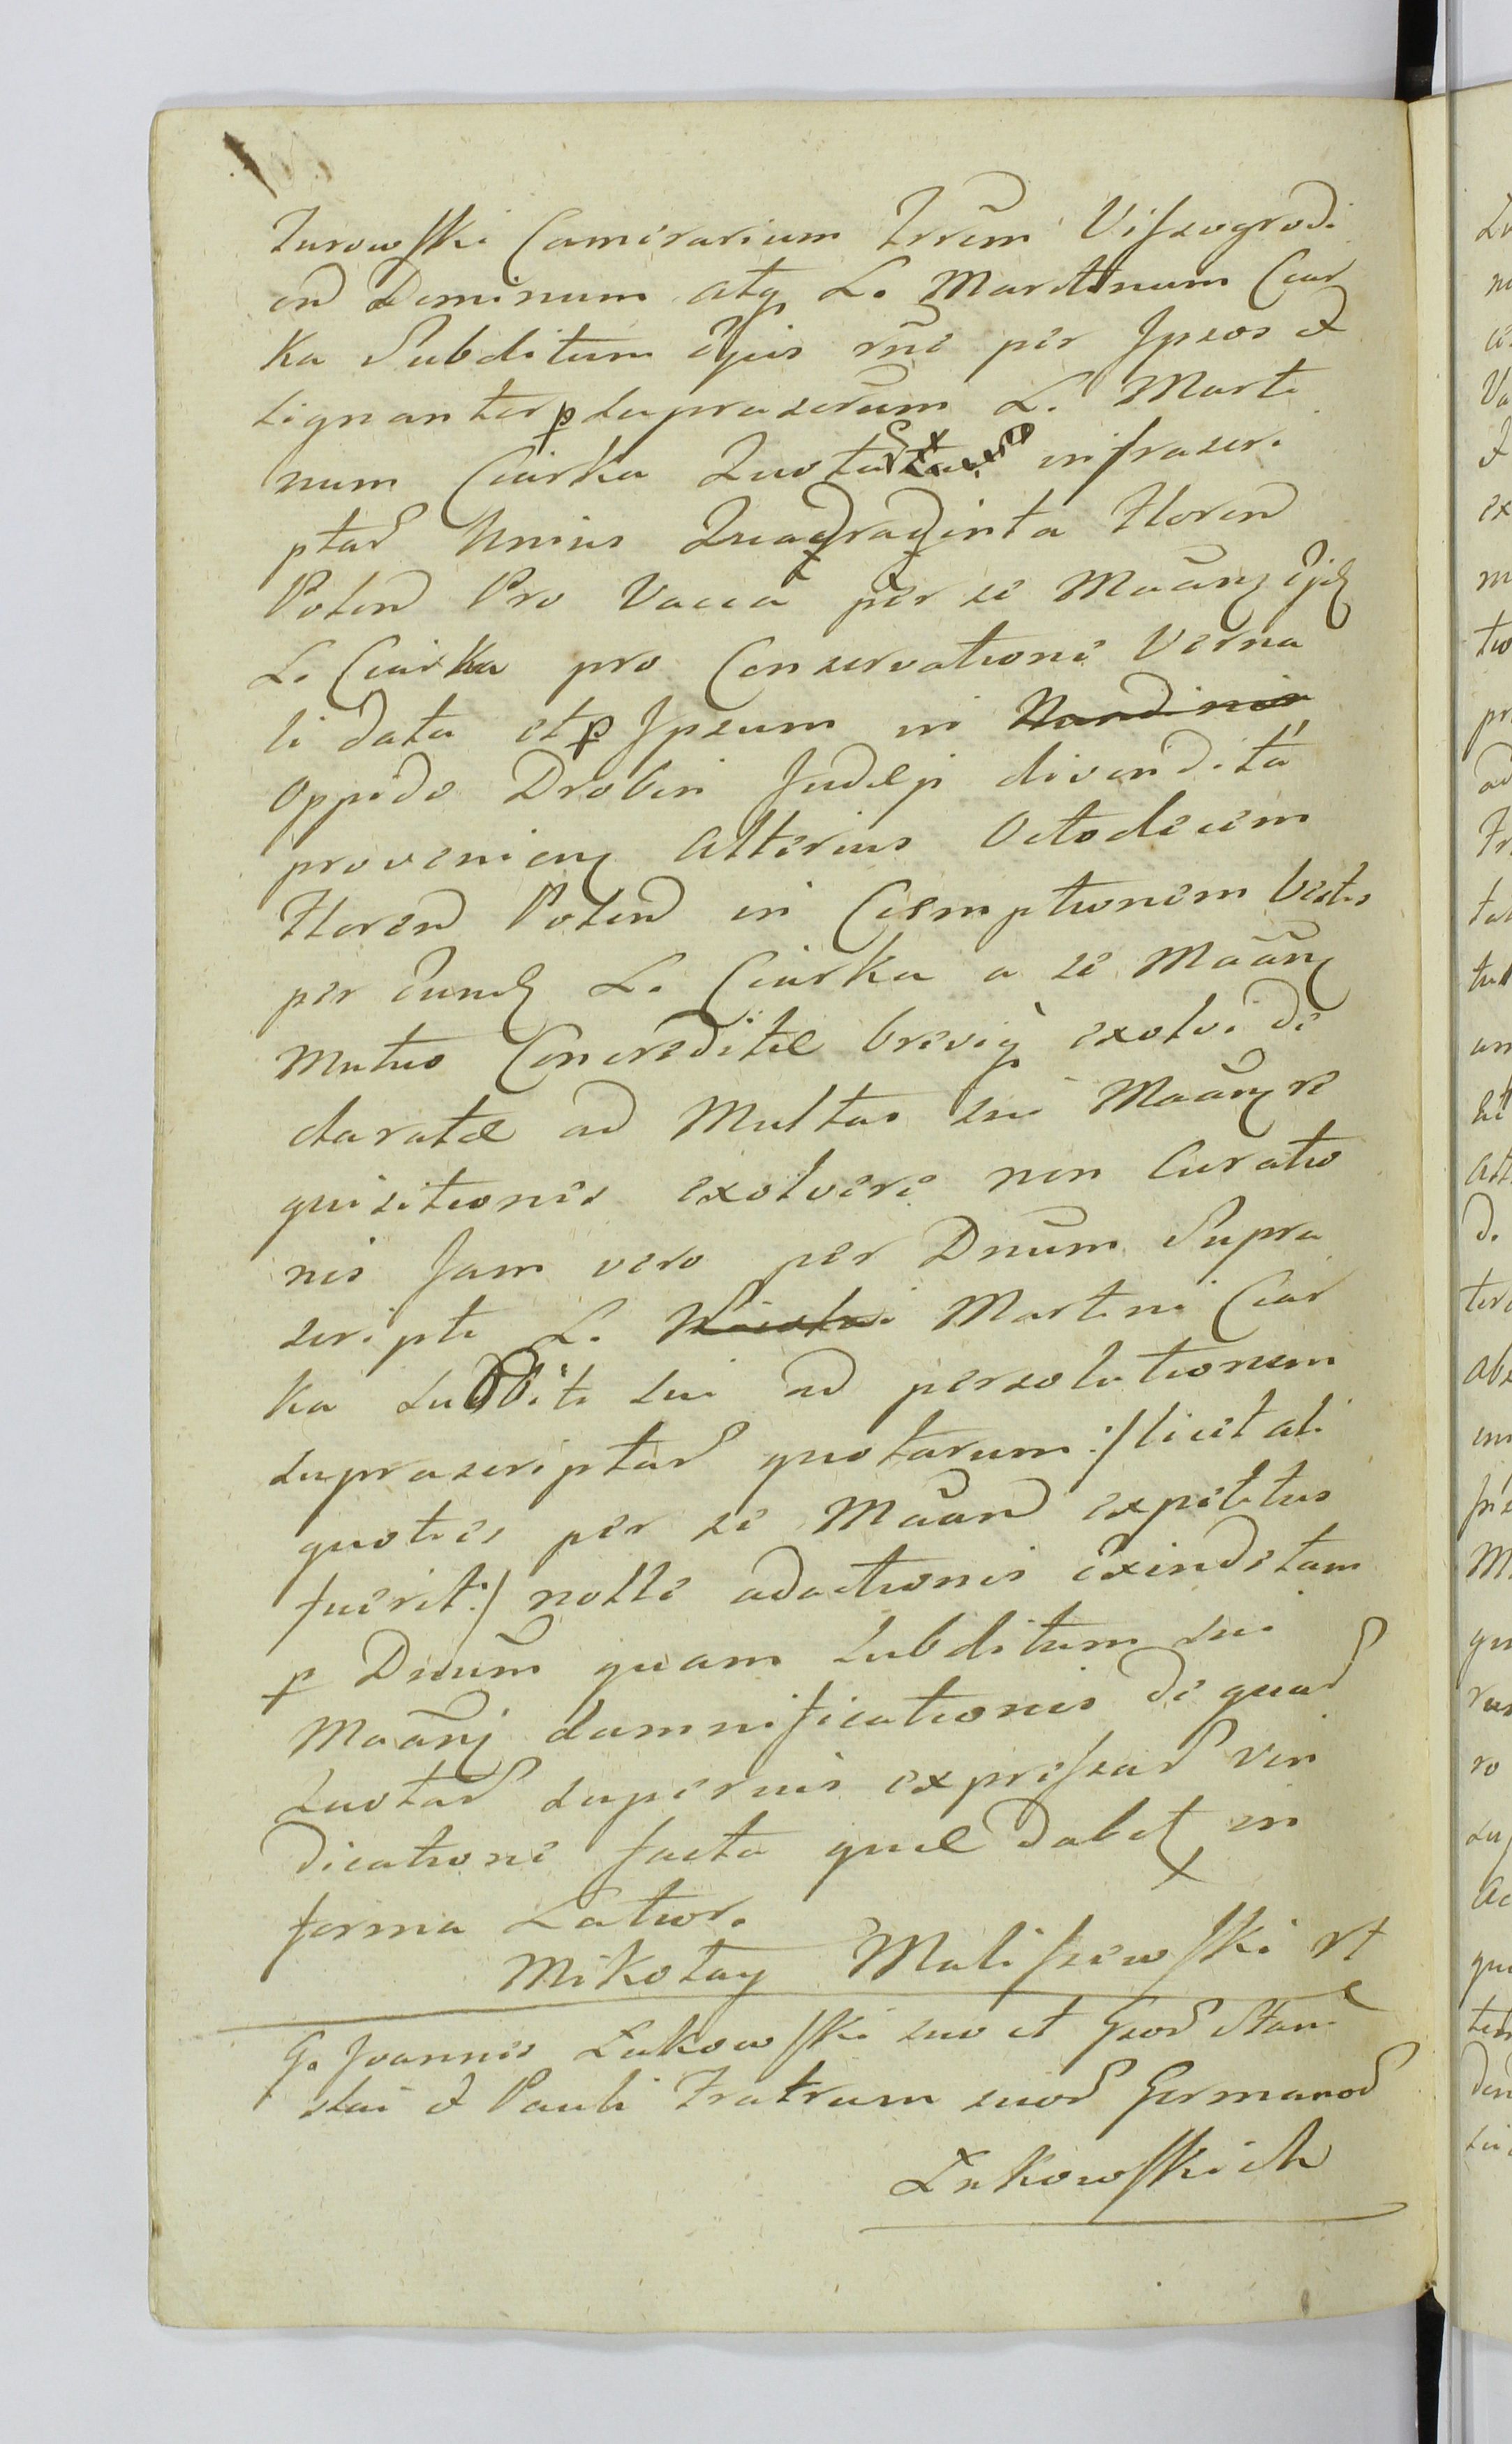 Zurowski Camerarium Trrūm Viszogrodi
en Dominum atq L. Martinum Ciar
ka Subditum ejus rne per Ipsos et
signanter p supraserūm L. Marti
num Ciarka Quotas infrascri
ptar Unius Quadraginta Floren
Polon Pro Vacca per se Maāng ejd
L. Ciarka pro Conservatione Verna
li data et p Ipsum in
Oppido Drobin Judæji divendita
provenieng Alterius Octodecem
Floren Polon in Coemptionem
per eund L. Ciarka a se Maāng
Mutuo Concreditæ brevig exolvi de
claratæ ad Multas sui Maāng re
quisitiones exolvere non Curatio
nis Jam vero per Dnūm Supra
scripti L. Martini Ciar
ka Subditi sui ad persolutionem
suprascriptar quotarum :/ licet ali
quoties per se Maān expetitus
fuerit :/ nolle adactionis exinde tam
p Dnūm quam Subditum sui
Maāng damnificationis de quar
Quotar superius expressar vin
dicatione facta quæ dabit in
forma Latior.
Mikołay Maliszewski
G. Joannes Łukowski suo et Gsor Stani
slai et Pauli Fratrum suor Germanor
Łukowskich